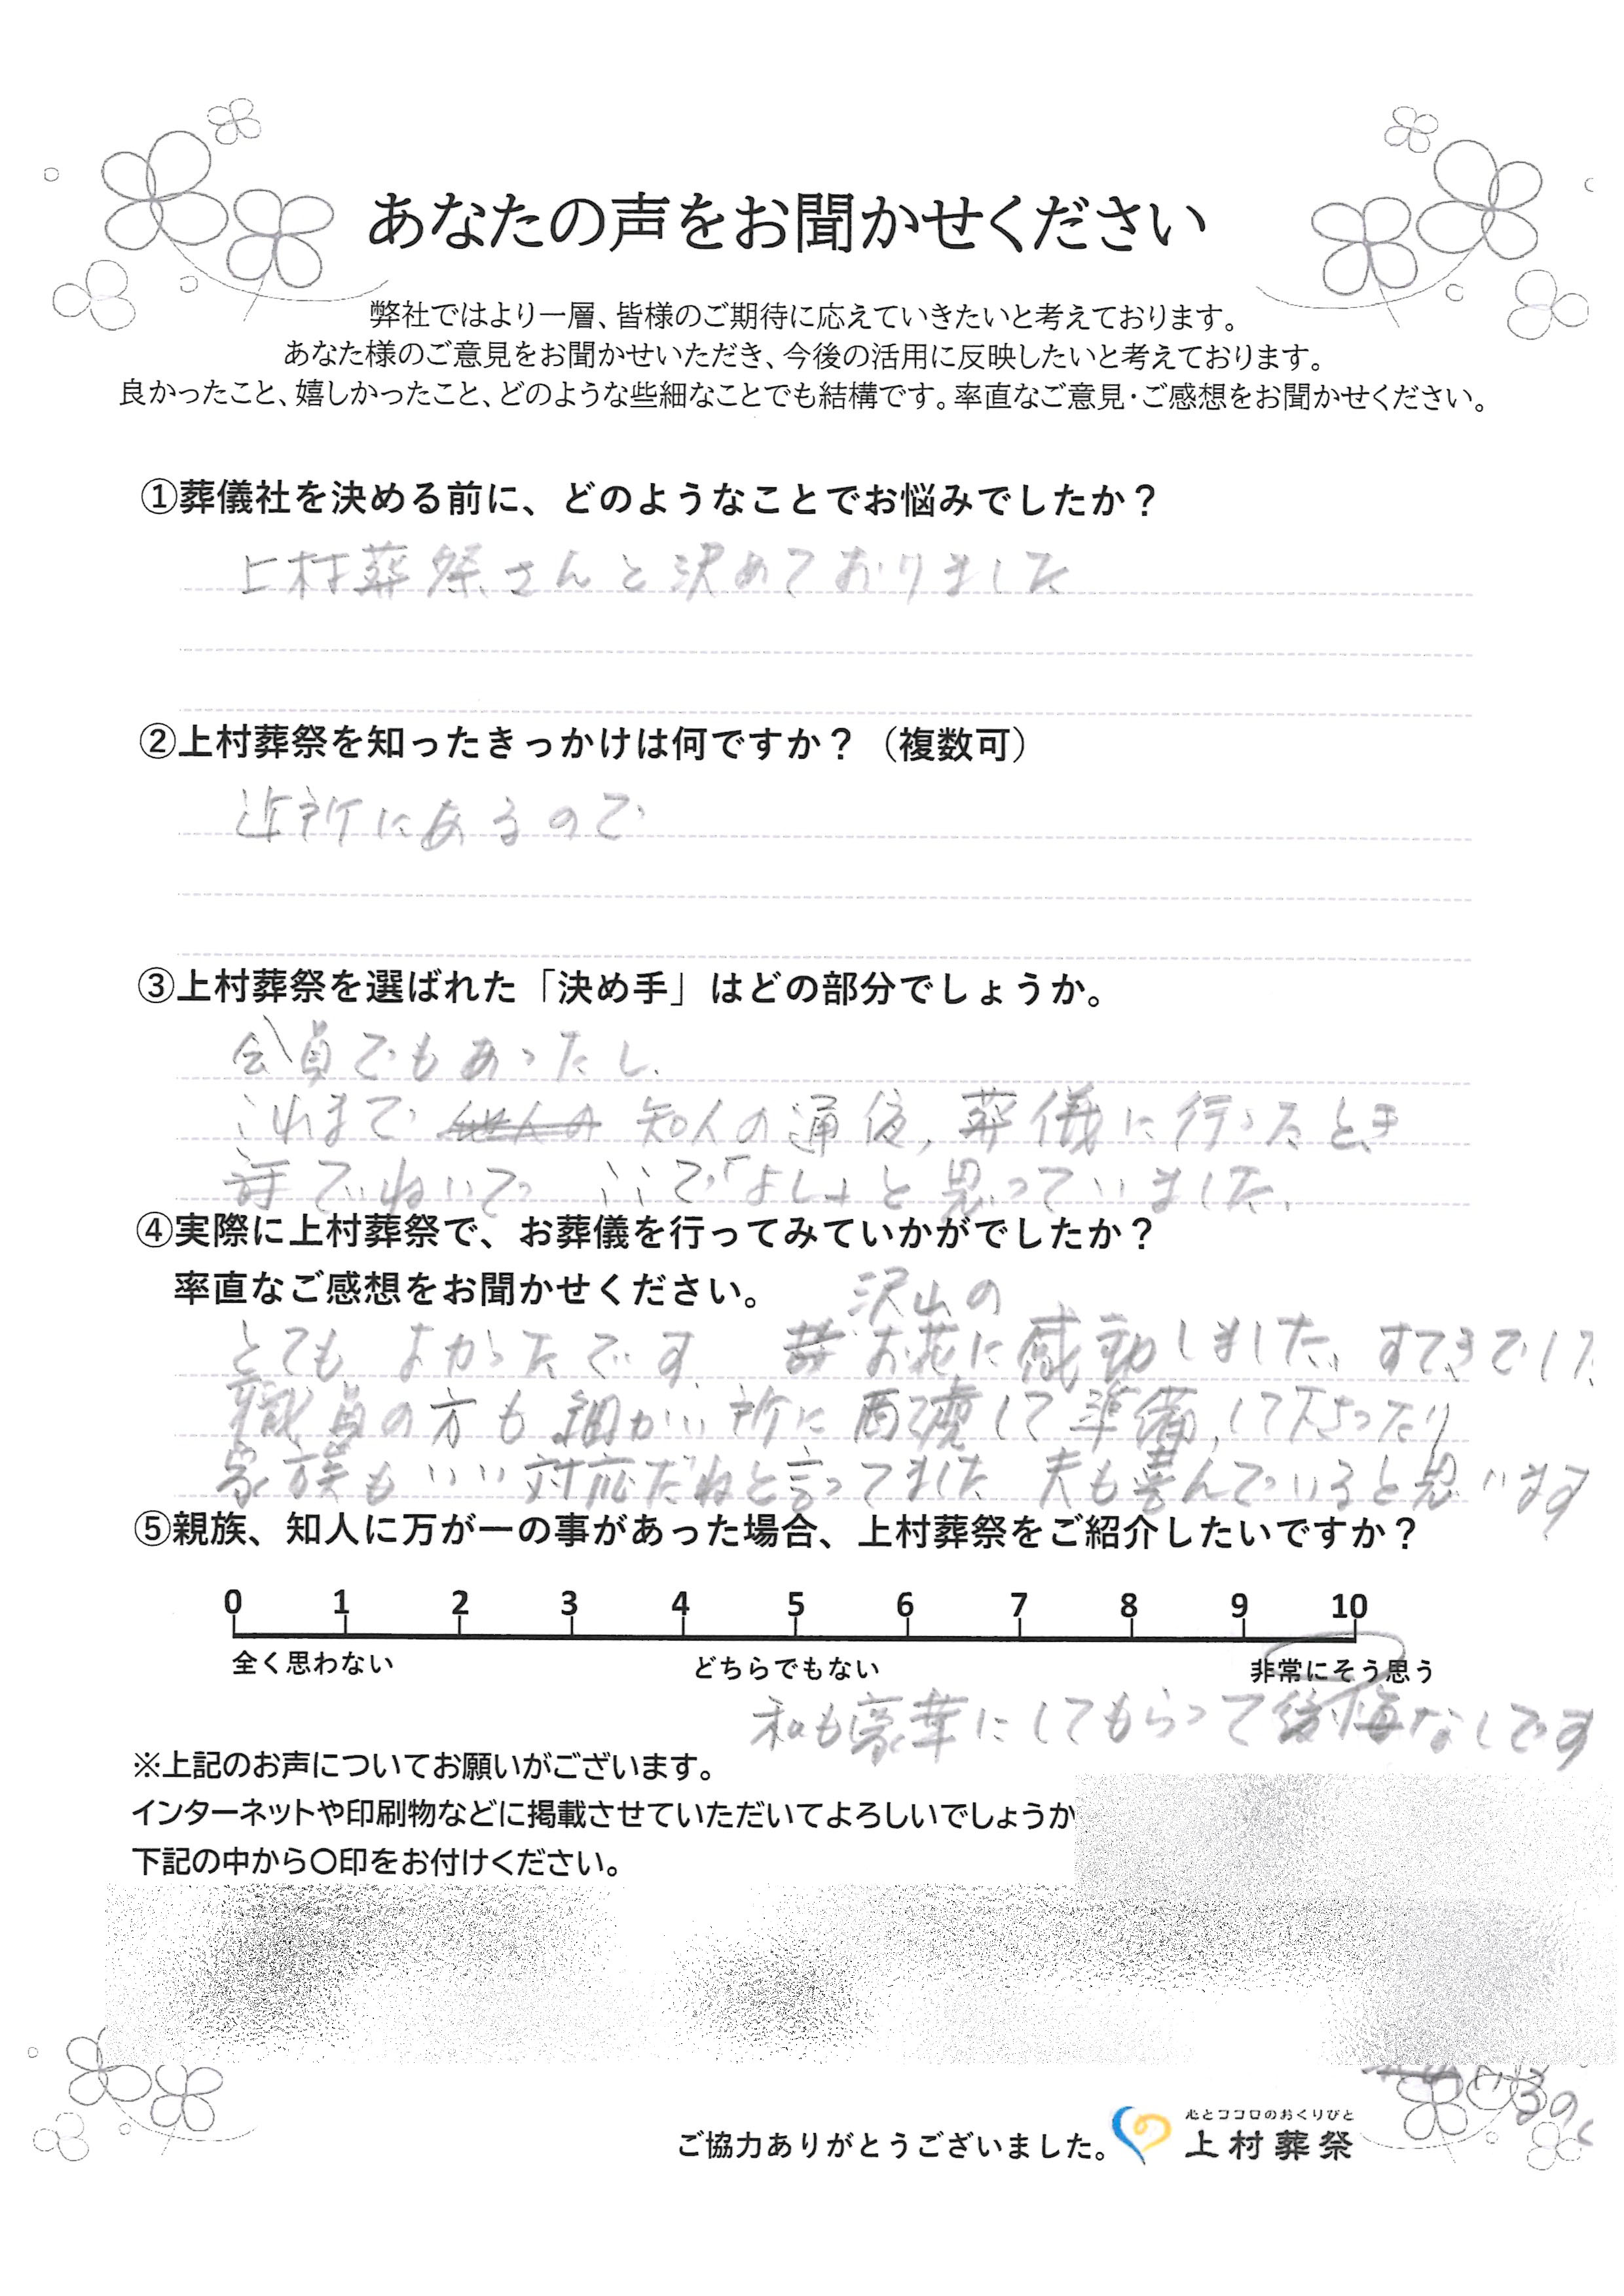 あなたの声をお聞かせください
弊社ではより一層、皆様のご期待に応えていきたいと考えております。
あなた様のご意見をお聞かせいただき、今後の活用に反映したいと考えております。
良かったこと、嬉しかったこと、どのような些細なことでも結構です。率直なご意見・ご感想をお聞かせください。
①葬儀社を決める前に、どのようなことでお悩みでしたか？
上村葬祭さんと決めておりました
②上村葬祭を知ったきっかけは何ですか？（複数可）
近所にあるので
③上村葬祭を選ばれた「決め手」はどの部分でしょうか。
会員でもあったし、
これまで 知人の通夜、葬儀に行ったとき
ここで「よし」と思っていました、
④実際に上村葬祭で、お葬儀を行ってみていかがでしたか？
率直なご感想をお聞かせください。
沢山の
とてもよかったです。お花に感動しました、すてきでした
職員の方も細かい所に配慮して準備して下さったり
家族もいい対応だねと言ってました 夫も喜んでいると思います
⑤親族、知人に万が一の事があった場合、上村葬祭をご紹介したいですか？
0 1 2 3 4 5 6 7 8 9 10
全く思わない どちらでもない 非常にそう思う
私も豪華にしてもらって後悔なしです
※上記のお声についてお願いがございます。
インターネットや印刷物などに掲載させていただいてよろしいでしょうか
下記の中から〇印をお付けください。
ご協力ありがとうございました。
心とココロのおくりびと
上村葬祭